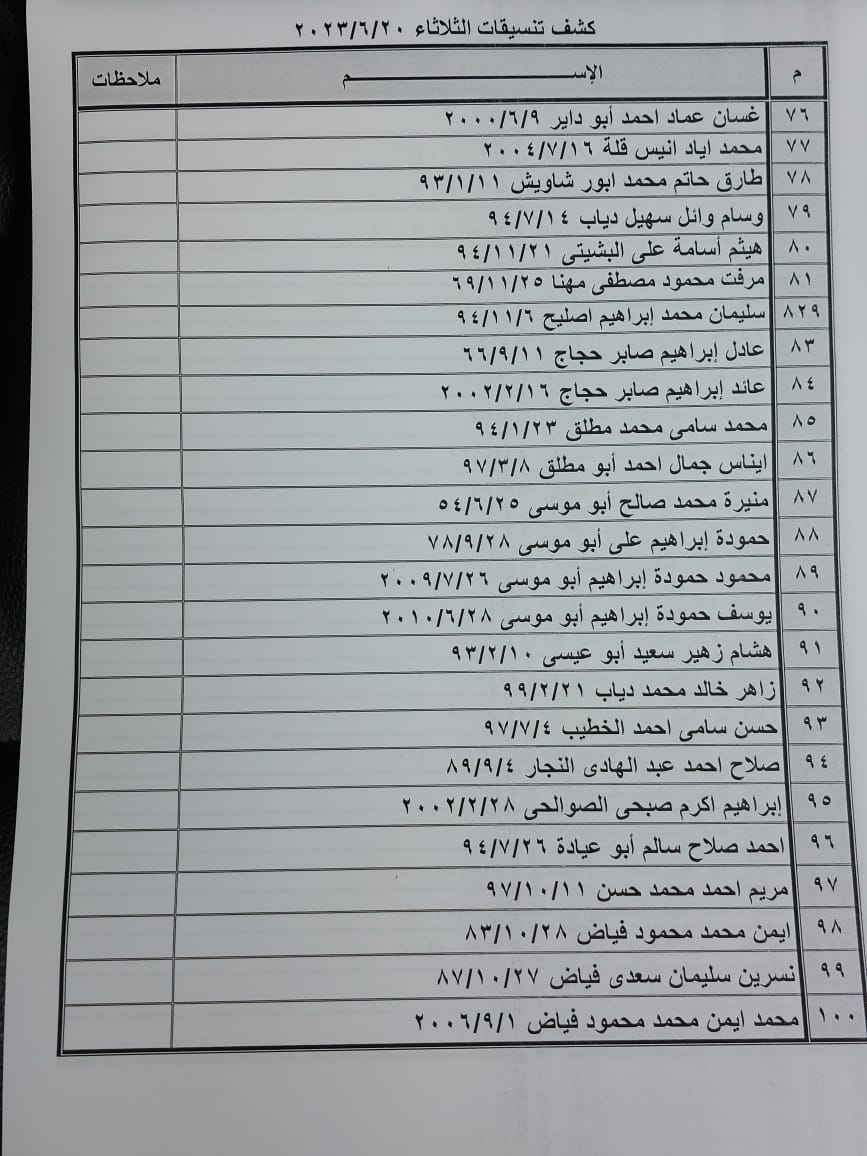 كشف تنسيقات الثلاثاء ٢٠٢٣/٦/٢٠
م الإســـــــــــــــم ملاحظات
٧٦ غسان عماد احمد أبو داير ٢٠٠٠/٦/٩
٧٧ محمد اياد انيس قلة ٢٠٠٤/٧/١٦
٧٨ طارق حاتم محمد ابور شاويش ٩٣/١/١١
٧٩ وسام وائل سهيل دياب ٩٤/٧/١٤
٨٠ هيثم أسامة على البشيتى ٩٤/١١/٢١
٨١ مرفت محمود مصطفى مهنا ٦٩/١١/٢٥
٨٢٩ سليمان محمد إبراهيم اصليح ٩٤/١١/٦
٨٣ عادل إبراهيم صابر حجاج ٦٦/٩/١١
٨٤ عائد إبراهيم صابر حجاج ٢٠٠٢/٢/١٦
٨٥ محمد سامى محمد مطلق ٩٤/١/٢٣
٨٦ ايناس جمال احمد أبو مطلق ٩٧/٣/٨
٨٧ منيرة محمد صالح أبو موسى ٥٤/٦/٢٥
٨٨ حمودة إبراهيم على أبو موسى ٧٨/٩/٢٨
٨٩ محمود حمودة إبراهيم أبو موسى ٢٠٠٩/٧/٢٦
٩٠ يوسف حمودة إبراهيم أبو موسى ٢٠١٠/٦/٢٨
٩١ هشام زهير سعيد أبو عيسى ٩٣/٢/١٠
٩٢ زاهر خالد محمد دياب ٩٩/٢/٢١
٩٣ حسن سامى احمد الخطيب ٩٧/٧/٤
٩٤ صلاح احمد عبد الهادى النجار ٨٩/٩/٤
٩٥ إبراهيم اكرم صبحى الصوالحى ٢٠٠٢/٢/٢٨
٩٦ احمد صلاح سالم أبو عيادة ٩٤/٧/٢٦
٩٧ مريم احمد محمد حسن ٩٧/١٠/١١
٩٨ ايمن محمد محمود فياض ٨٣/١٠/٢٨
٩٩ نسرين سليمان سعدى فياض ٨٧/١٠/٢٧
١٠٠ محمد ايمن محمد محمود فياض ٢٠٠٦/٩/١